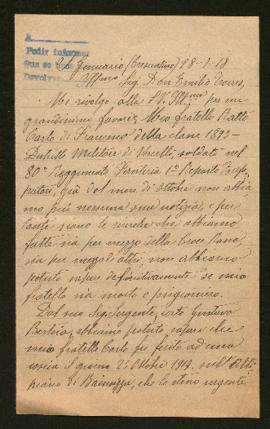 A
Pedir informe
Que se
Devolver
S. Gennuario (Crescentino) 28-1-18
Sig. Don Emilio Torres,
Mi rivolgo alla S.V. Ill.ma per un
grandissimo favore. Mio fratello Batto
Carlo di Francesco della classe 1892
Distretto Militare di Vercelli, soldato nel
80° Reggimento Fanteria 1° Reparto Zap-
patori, già dal mese di ottobre non abbia
mo più nessuna sua notizia, e per
tante siano le ricerche che abbiamo
fatte sia per mezzo della Croce Rossa,
sia per mezzo d'altri, non abbiamo
potuto sapere definitivamente se mio
fratello sia morto o prigioniero.
Dal suo Sig. Sergente, certo Gustavo
abbiamo potuto sapere che
mio fratello Carlo fu ferito ad una
coscia il giorno 25 Ottobre 1917, nell' Alti
piano di Bainsizza, che lo stesso sergente